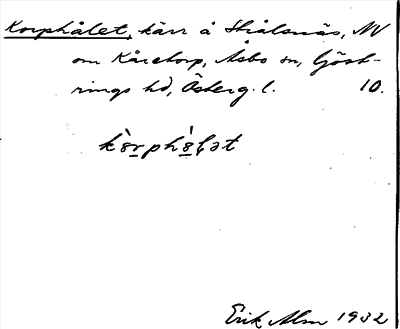 Korphålet, kärr å Strålsnäs, NV
om Kåretorp, Åsbo sn, Göst-
rings hd, Österg. l. 10.
kòrphó̱lət
Erik Alm 1932